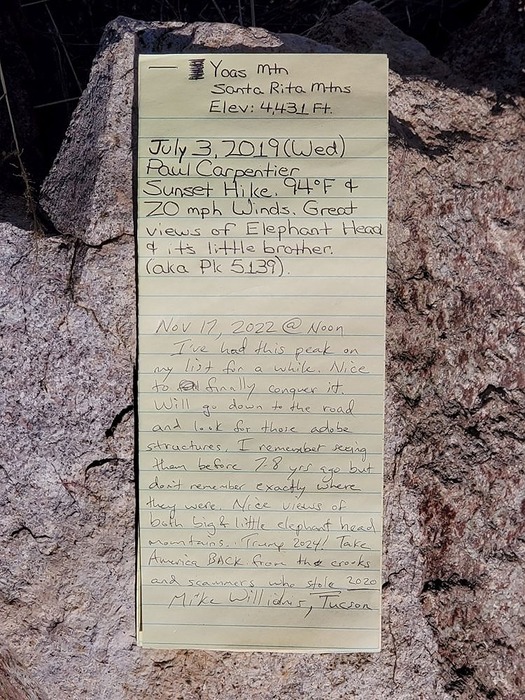 — Yoas Mtn
Santa Rita Mtns
Elev: 4,431 Ft.
July 3, 2019 (Wed)
Paul Carpentier
Sunset Hike. 94°F &
20 mph Winds. Great
views of Elephant Head
& it's little brother.
(aka Pk 5139).
Nov 17, 2022 @ Noon
I've had this peak on
my list for a while. Nice
to finally conquer it.
Will go down to the road
and look for those adobe
structures. I remember seeing
them before 7-8 yrs ago but
don't remember exactly where
they were. Nice views of
both big & little elephant head
mountains. Trump 2024! Take
America BACK from the crooks
and scammers who stole 2020
Mike Williams, Tucson